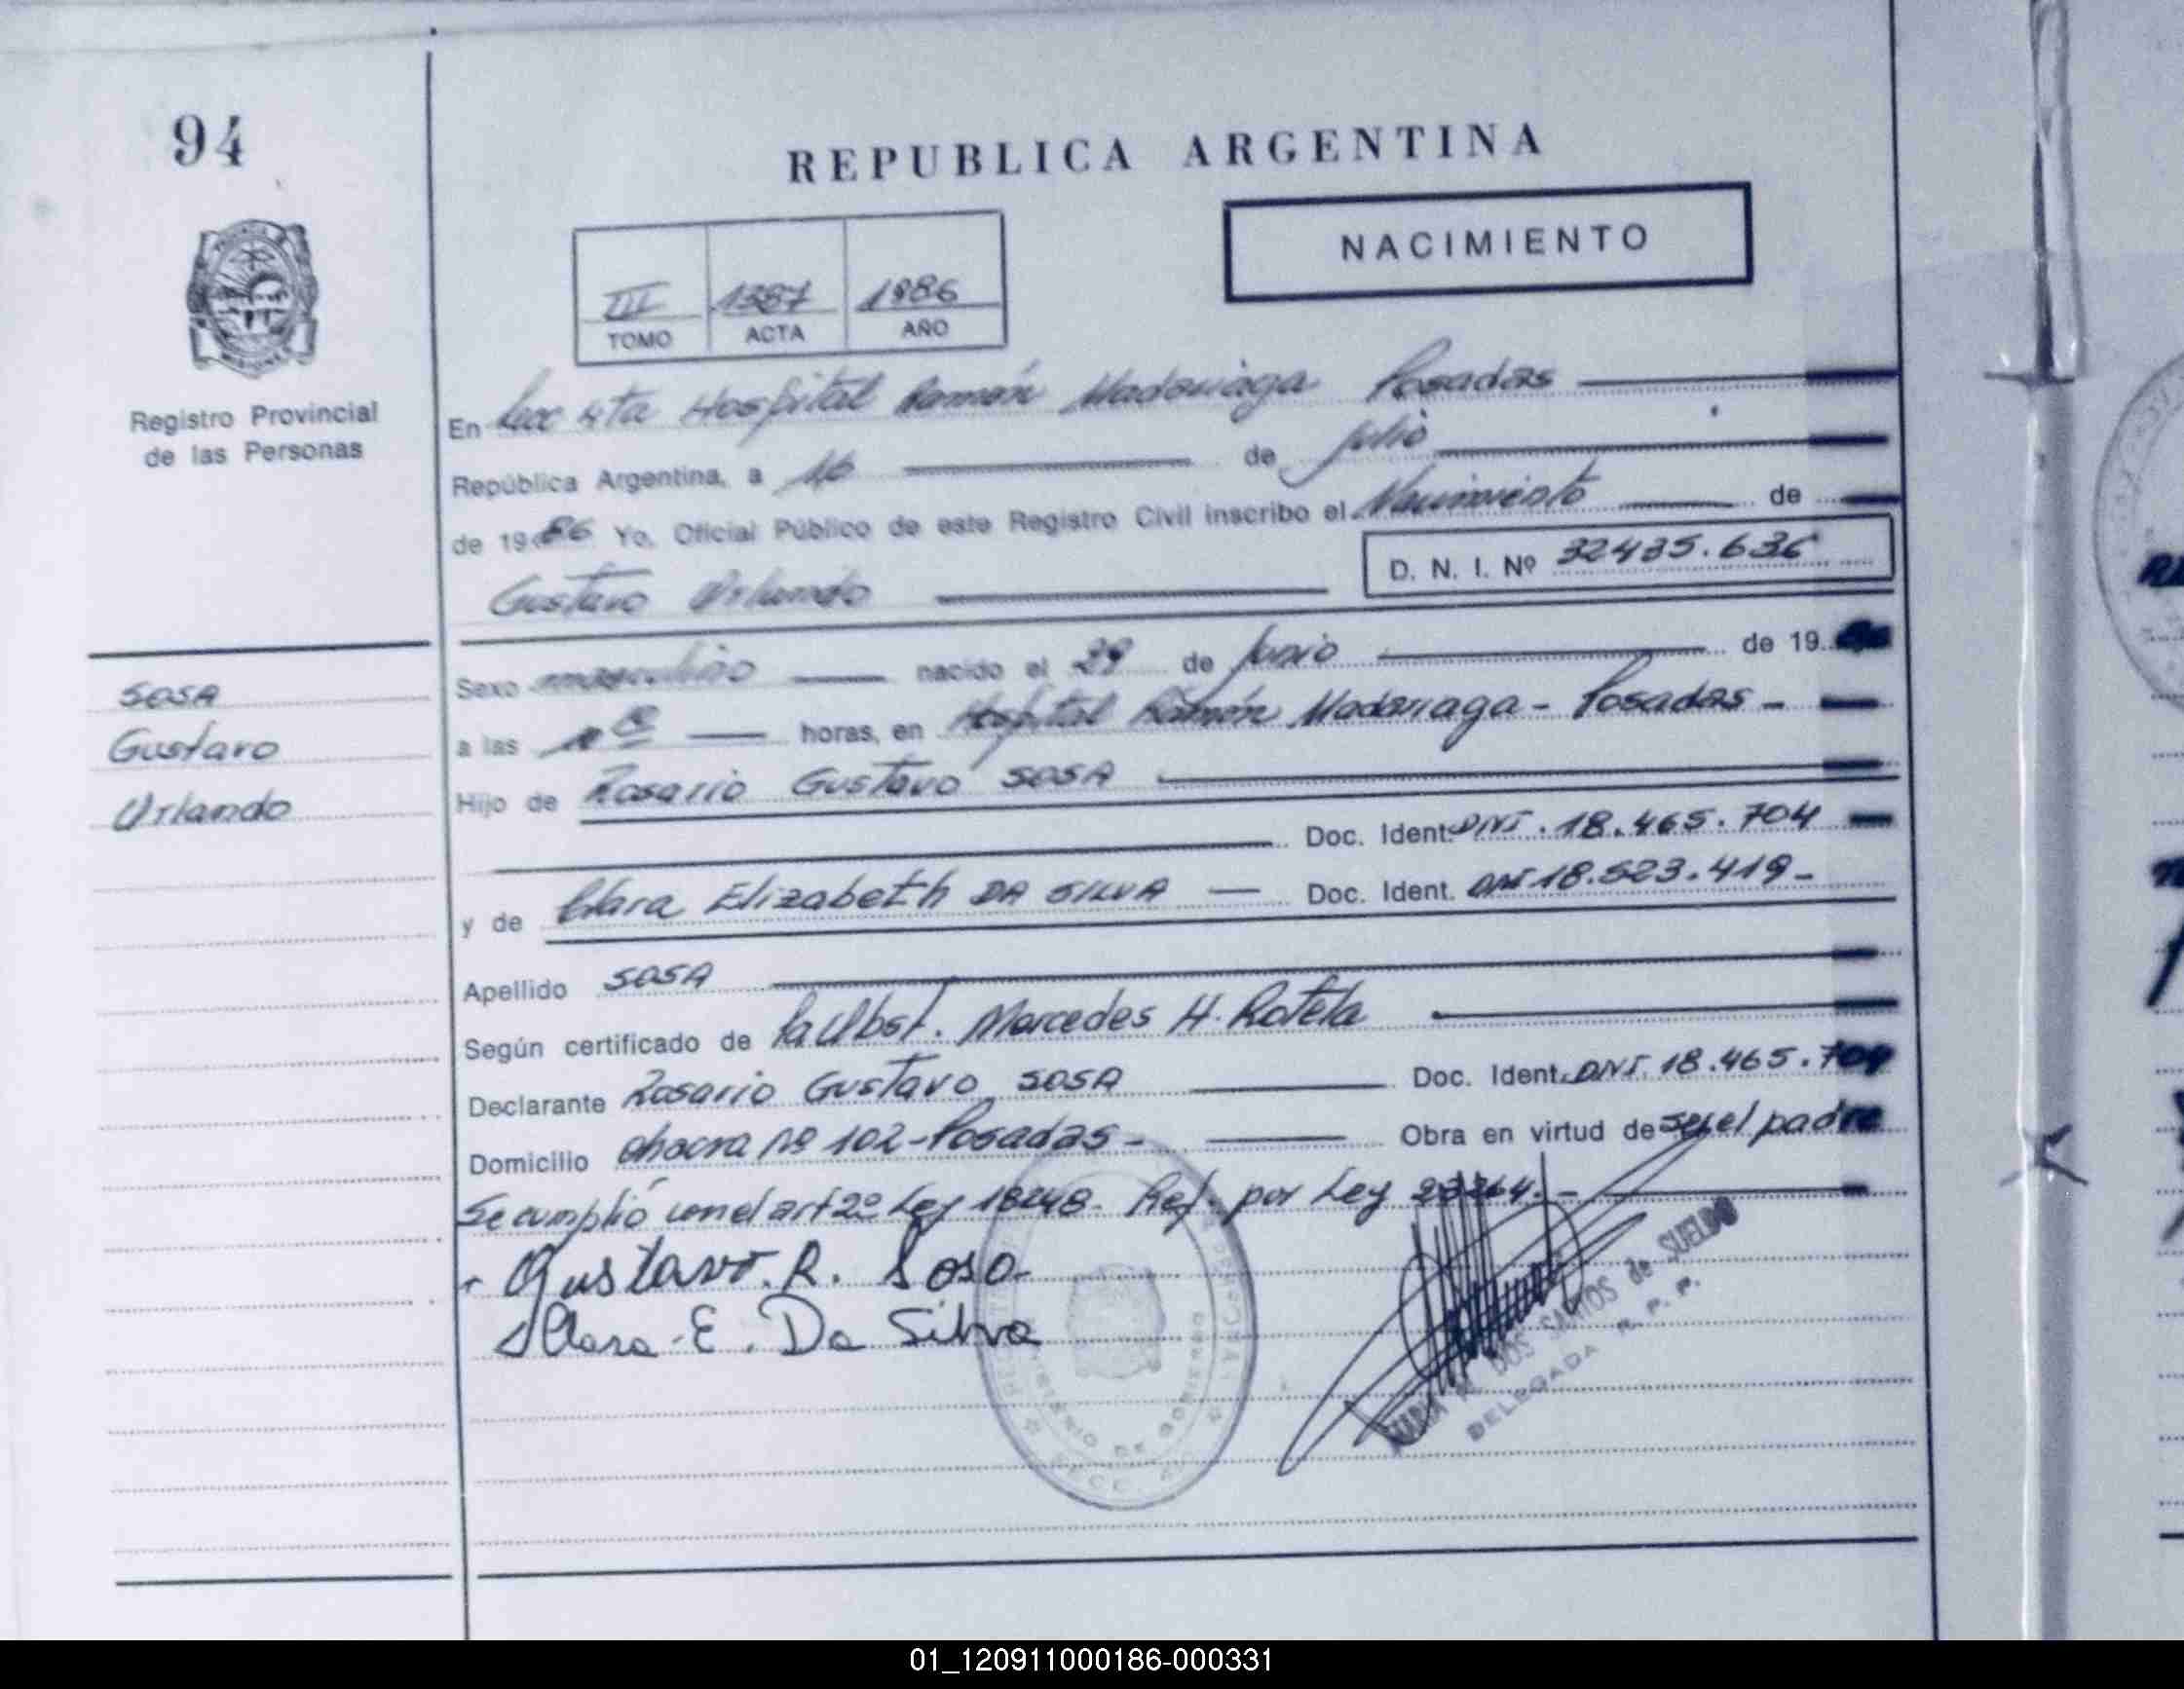 94
REPUBLICA ARGENTINA
NACIMIENTO
III 1387 1986
TOMO ACTA AÑO
Registro Provincial
de las Personas
En Secc 4ta Hospital Ramón Madariaga Posadas
República Argentina, a 16 de Julio
de 1986 Yo, Oficial Público de este Registro Civil inscribo el Nacimiento de
D. N. I. Nº 32435.636
Gustavo Orlando
SOSA
Gustavo
Orlando
Sexo masculino nacido el 29 de Junio de 19
a las horas, en Hospital Ramón Madariaga - Posadas -
Hijo de Rosario Gustavo SOSA
Doc. Ident. DNI. 18.465.704
y de Clara Elizabeth DA SILVA Doc. Ident. DNI 18.523.419-
Apellido SOSA
Según certificado de la Obst. Mercedes H. Rotela
Declarante Rosario Gustavo SOSA Doc. Ident. DNI. 18.465.704
Domicilio Chacra Nº 102-Posadas- Obra en virtud de ser el padre
Se cumplió con el art 2º Ley 18248. Ref. por Ley 23264.-
Gustavo. R. Sosa
Clara E. Da Silva
DOS SANTOS de SUELDO
DELEGADA R. P. P.
MINISTERIO DE GOBIERNO
01_120911000186-000331